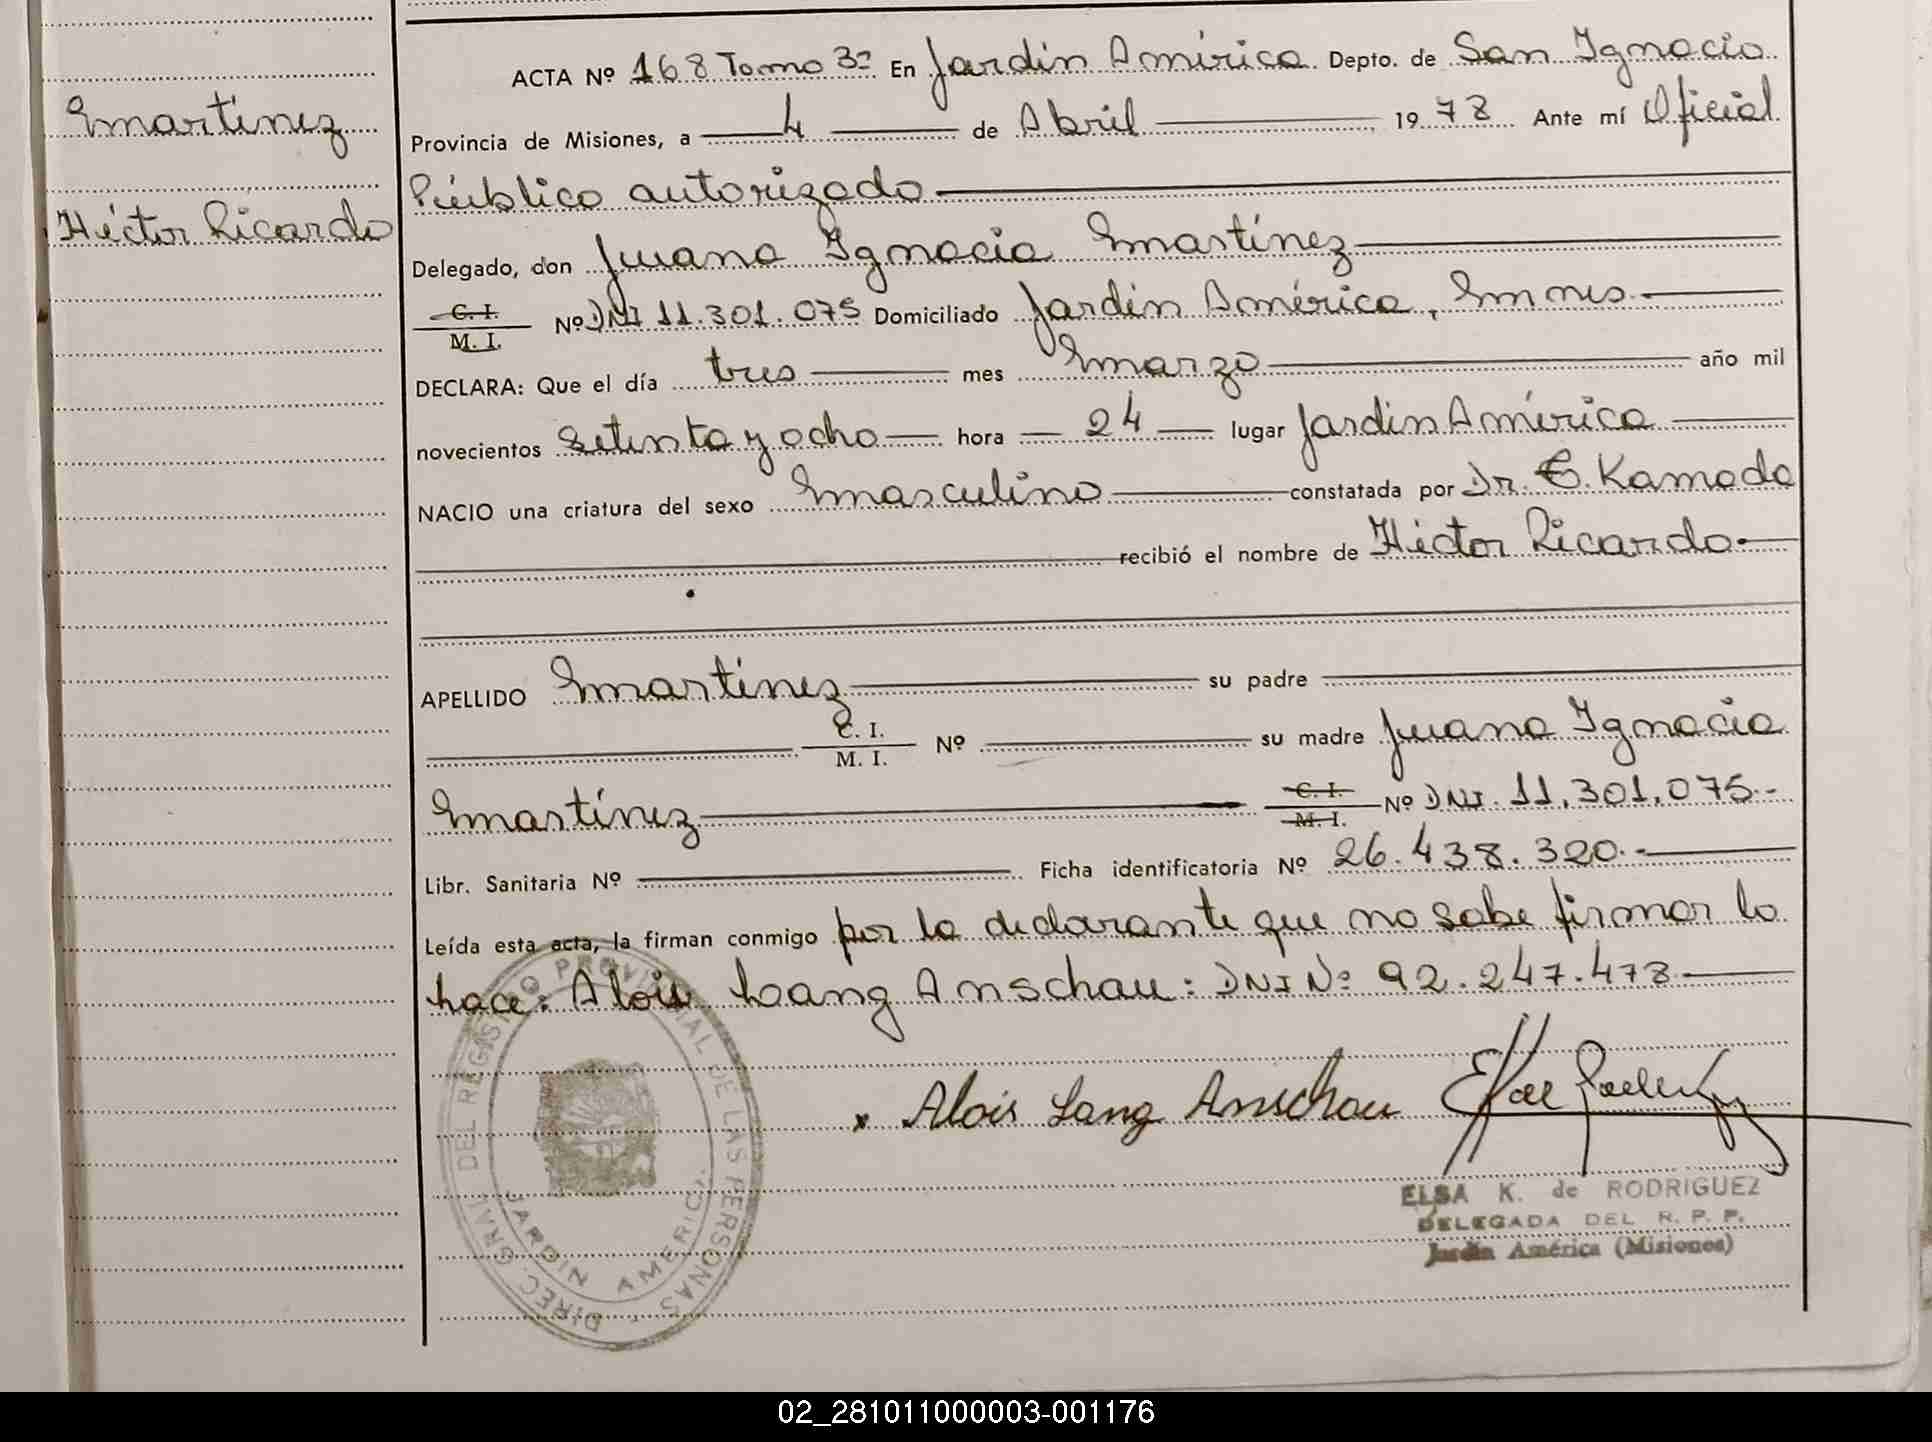 Martínez
Héctor Ricardo
ACTA Nº 168 Tomo 3º En Jardín América Depto. de San Ignacio
Provincia de Misiones, a 4 de Abril 1978 Ante mí Oficial
Público autorizado
Delegado, don Juana Ignacia Martínez
C. I.
M. I. Nº DNI 11.301.075 Domiciliado Jardín América, Mnes
DECLARA: Que el día tres mes Marzo año mil
novecientos setenta y ocho hora 24 lugar Jardín América
NACIO una criatura del sexo Masculino constatada por Dr. C. Kamada
recibió el nombre de Héctor Ricardo.
APELLIDO Martínez su padre
C. I.
M. I. Nº su madre Juana Ignacia
Martínez C. I.
M. I. Nº DNI. 11.301.075.-
Libr. Sanitaria Nº Ficha identificatoria Nº 26.438.320.-
Leída esta acta, la firman conmigo por la declarante que no sabe firmar lo
hace: Alois Lang Anschau: DNI Nº 92.247.478
x Alois Lang Anschau
DIREC. GRAL. DEL REGISTRO PROVINCIAL DE LAS PERSONAS
JARDIN AMERICA
ELSA K. de RODRIGUEZ
DELEGADA DEL R. P. P.
Jardín América (Misiones)
02_281011000003-001176